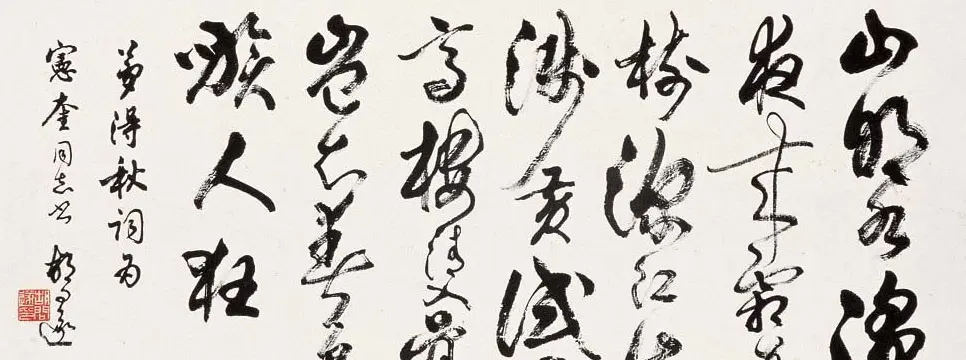 山明水淨
夜來霜
樹深紅出
淺黃試
高樓清入骨
豈如春色
嗾人狂
夢得秋詞為
憲奎同志書 胡問遂